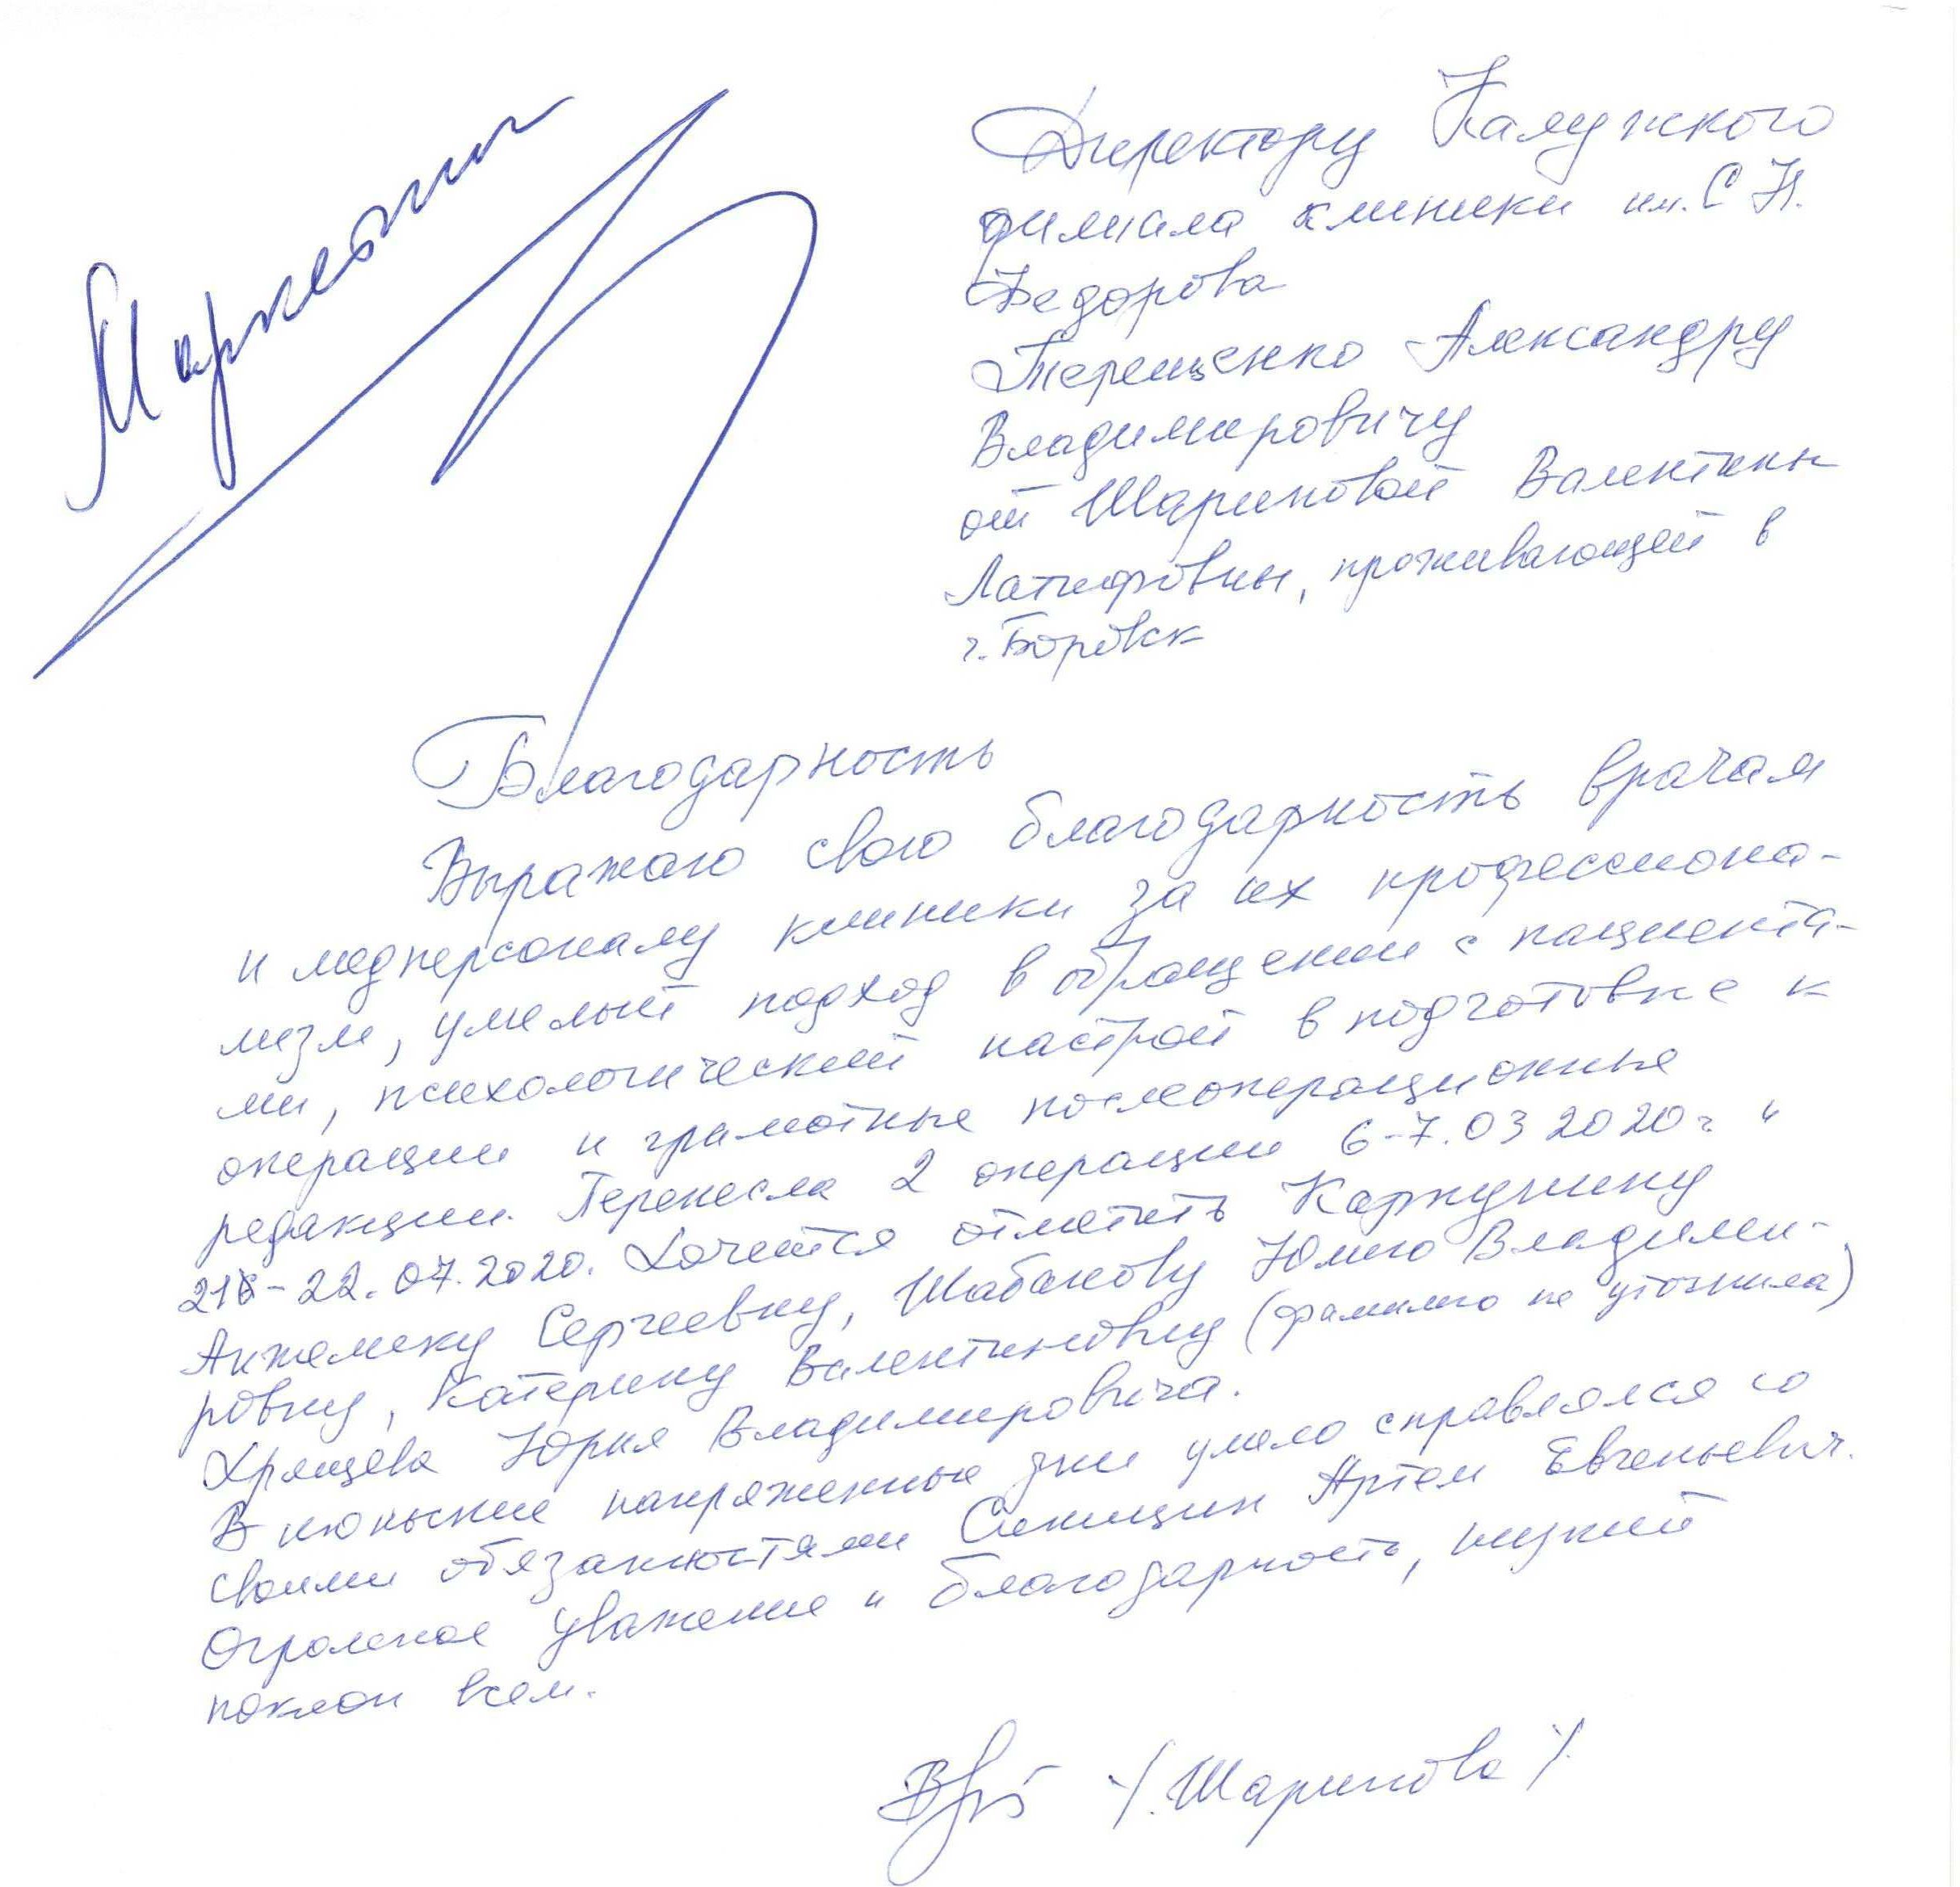 Директору Калужского
филиала клиники им. С Н.
Федорова
Терещенко Александру
Владимировичу
от Шариповой Валентины
Латифовны, проживающей в
г. Боровск
Благодарность
Выражаю свою благодарность врачам
и медперсоналу клиники за их профессиона-
лизм, умелый подход в обращении с пациента-
ми, психологический настрой в подготовке к
операции и грамотные послеоперационные
редакции. Перенесла 2 операции 6-7.03 2020г. и
21-22.07.2020. Хочется отметить Карпунину
Анжелику Сергеевну, Шабанову Юлию Владими-
ровну, Катерину Валентиновну (фамилию не уточнила)
Хрящева Юрия Владимировича.
В июньские напряженные дни умело справлялся со
своими обязанностями Синицин Артем Евгеньевич.
Огромное уважение и благодарность, низкий
поклон всем.
/. Шарипова /.